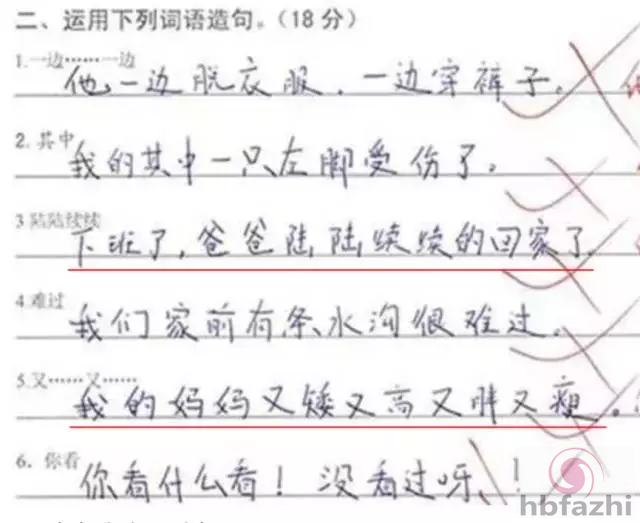 二、运用下列词语造句。(18分)
1.一边……一边
他一边脱衣服，一边穿裤子。
2.其中
我的其中一只左脚受伤了。
3 陆陆续续
下班了，爸爸陆陆续续的回家了。
4.难过
我们家前有条水沟很难过。
5.又……又……
我的妈妈又矮又高又胖又瘦。
6. 你看
你看什么看！没看过呀！
hbfazhi